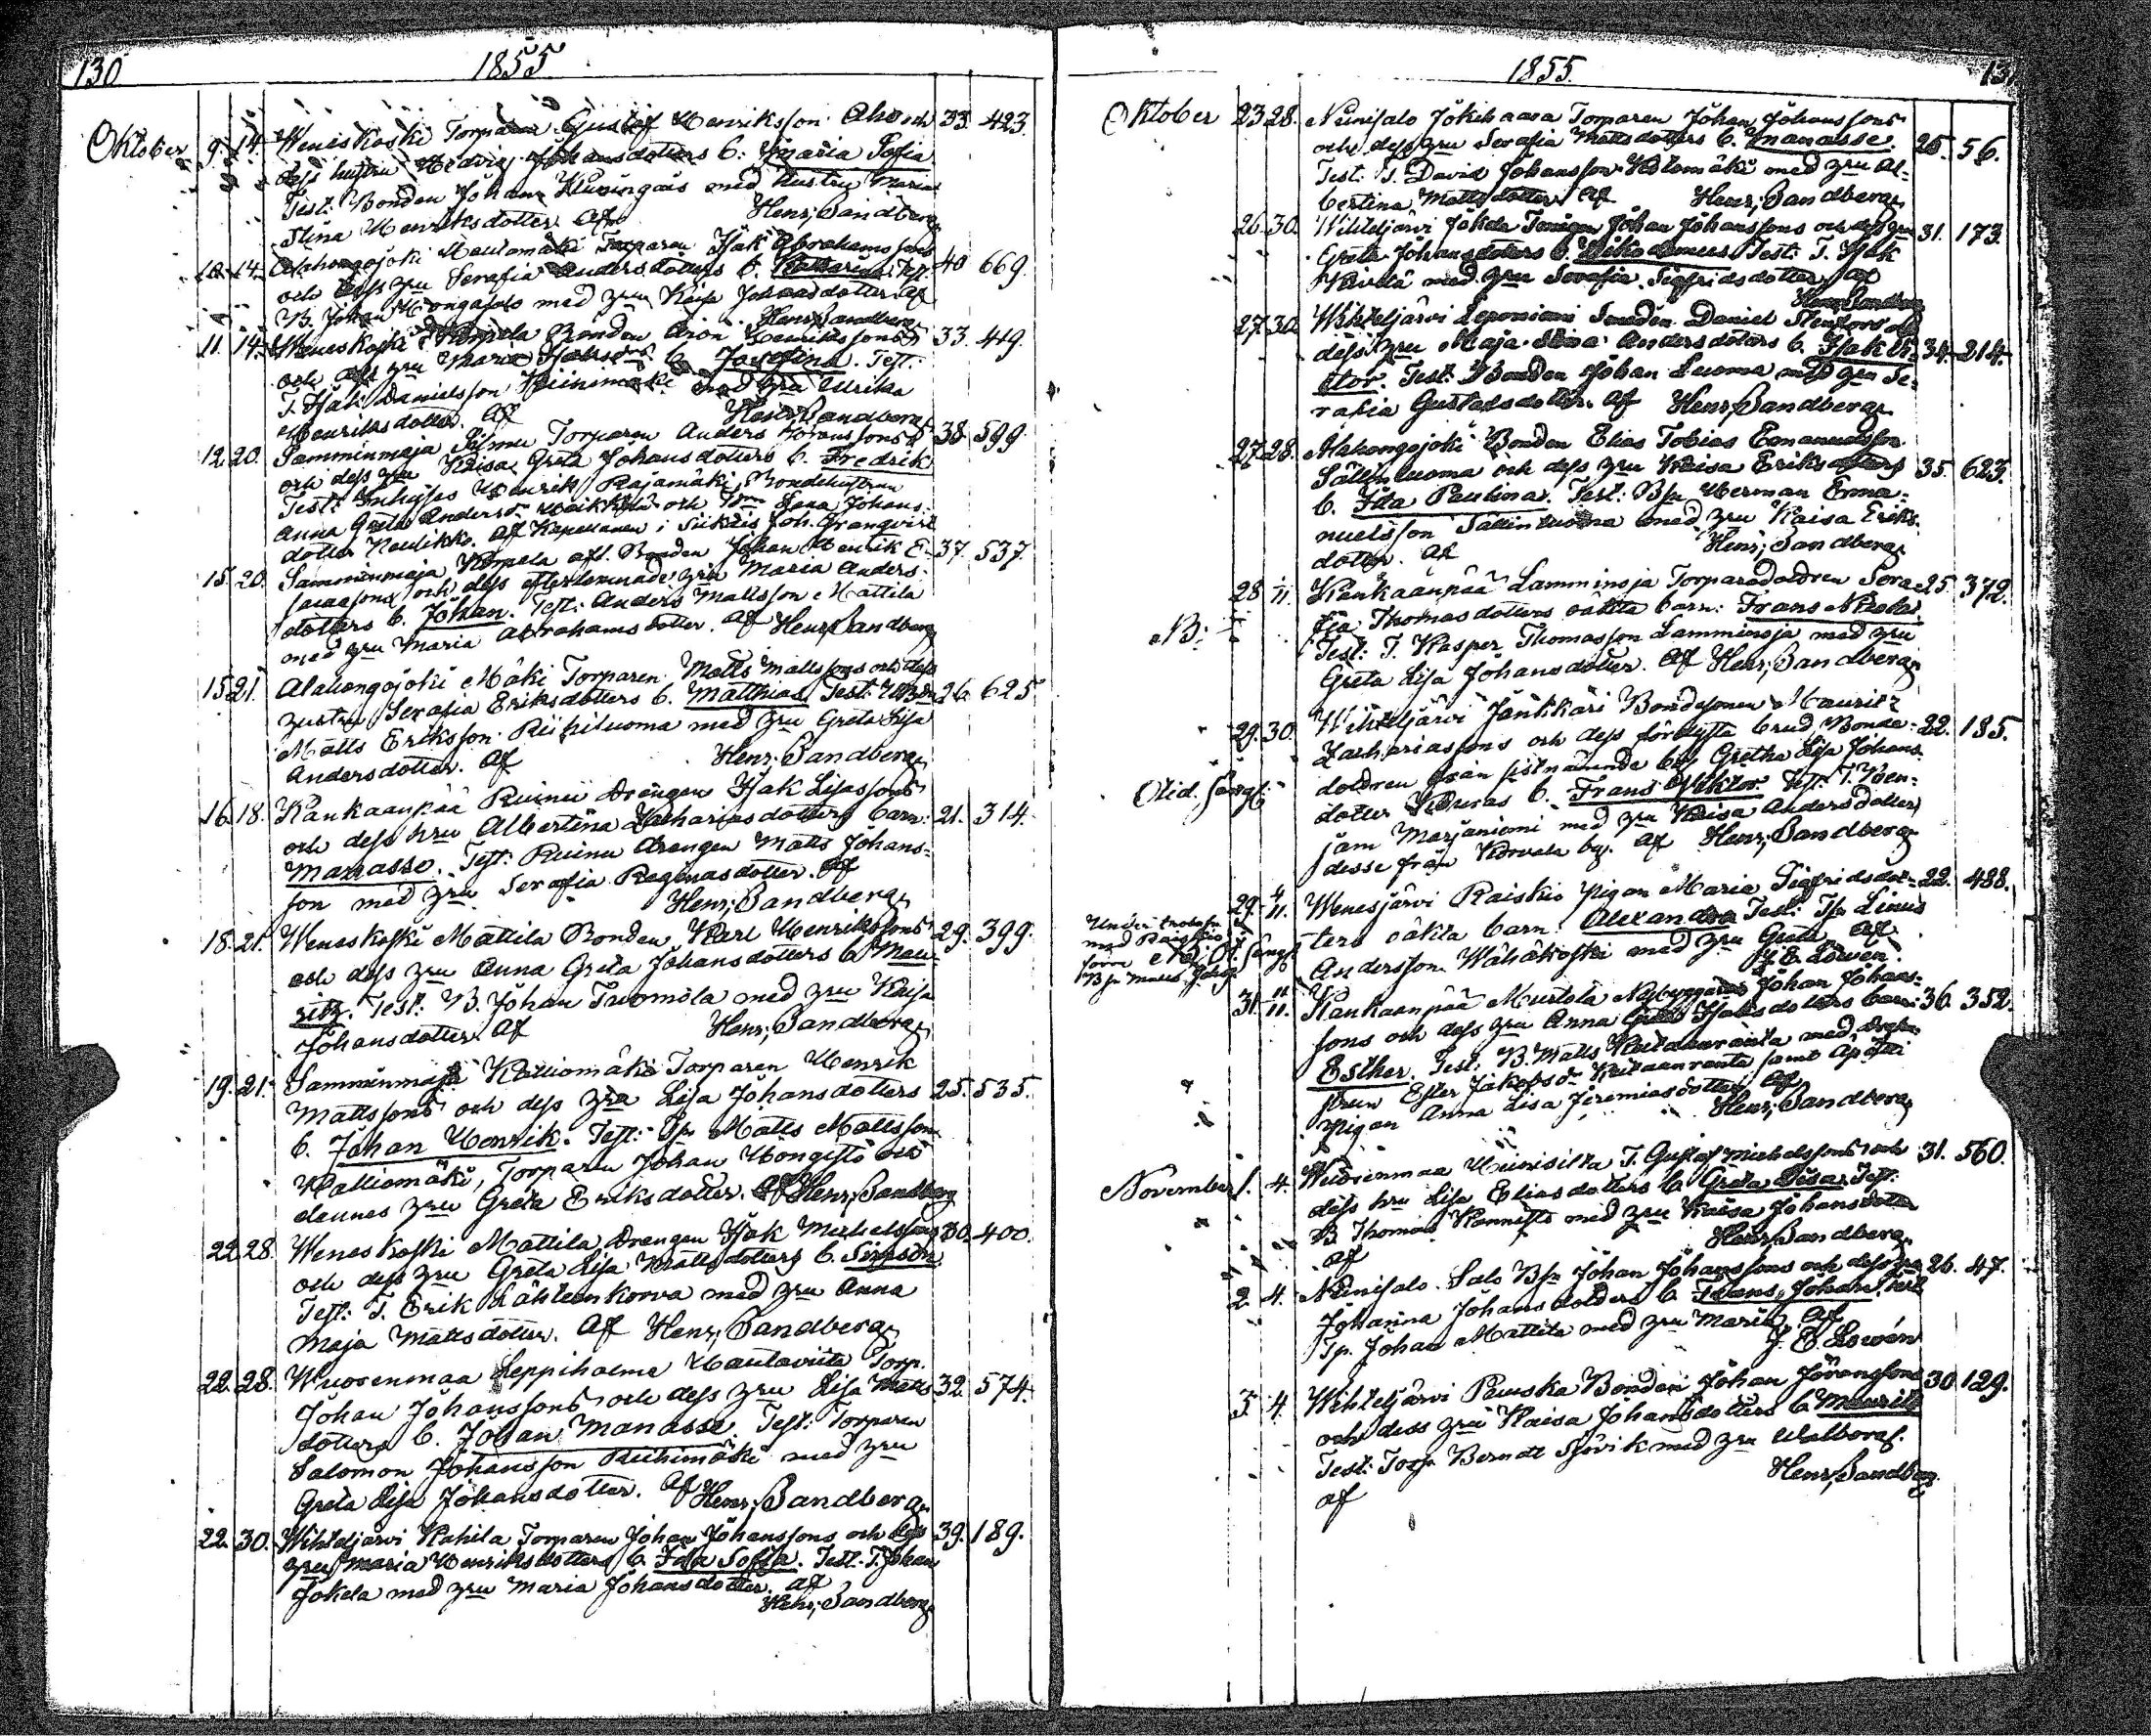 130
1855
Oktober 9. 14. Weneskoski Torparen Gustaf Henriksson Aho och 33. 423.
dess hustru Hedvig Johansdotters b. Maria Sofia
Test: Bonden Johan med hustru Maria
Stina Henriksdotter af Henr; Sandberg
10. 14. Alahongojoki Hautomäki Torparen Isak Abrahamssons 40 669.
och dess hru Serafia Andersdotters b. Katharina. Test:
B. Johan Hongasalo med hru Kaisa Johansdotter af
Henr; Sandberg
11. 14. Weneskoski Korpela Bonden Aron Henrikssons 33. 449.
och dess hru Maria Isaksdrs b. Josefina. Test:
T. Isak Danielsson Niinimäki med hru Ulrika
Henriksdotter. af Henr; Sandberg
12. 20. Samminmaja Salmu Torparen Anders Göranssons 38 599
och dess hru Kaisa Greta Johansdotters b. Fredrik
Test: Inhyses Henrik Rajamäki, Bondehustrun
Anna Greta Andersdr och Lena Johans-
dotter Koulikko. af Kapellanen i Siikais Joh. Granqvist
15. 20. Samminmaja Korpela afl. Bonden Johan Henrik E- 37. 537.
saiassons och dess efterlemnade hru Maria Anders-
dotters b. Johan. Test: Anders Mattsson Mattila
med hru Maria Abrahamsdotter. af Henr; Sandberg
15 21. Alahongojoki Mäki Torparen Matts Mattssons och dess 26. 625
hustru Serafia Eriksdotters b. Matthias Test:
Matts Eriksson Riihiluoma med hru Greta Lisa
Andersdotter. af Henr; Sandberg
16. 18. Kankaanpää Ruinu Drängen Isak Lisassons 21. 314.
och dess hru Albertina Zachariasdotters barn:
Manasse. Test: Ruinu Drängen Matts Johans-
son med hru Serafia Reginasdotter. af
Henr; Sandberg
18. 21. Weneskoski Mattila Bonden Karl Henrikssons 29. 399.
och dess hru Anna Greta Johansdotters b. Mau-
ritz. Test: B. Johan Tuomola med hru Kaisa
Johansdotter. af Henr; Sandberg
19. 21. Samminmaja Kalliomäki Torparen Henrik
Mattssons och dess hru Lisa Johansdotters 25. 535.
b. Johan Henrik. Test: Tp. Matts Mattsson
Kalliomäki, Torparen Johan Hongisto och
dennes hru Greta Eriksdotter. af Henr; Sandberg
22. 28. Weneskoski Mattila Drängen Isak Michelssons 30. 400.
och dess hru Greta Lisa Mattsdotters b. Simson
Test: T. Erik Lähteenkorva med hru Anna
Maja Mattsdotter. af Henr; Sandberg
22. 28. Wuorenmaa Leppiholme Hautaviita Torp.
Johan Johanssons och dess hru Lisa Matts- 32. 574.
dotters b. Johan Manasse. Test: Torparen
Salomon Johansson Riihimäki med hru
Greta Lisa Johansdotter. af Henr; Sandberg
22. 30. Wihteljärvi Rahila Torparen Johan Johanssons och dess 39. 189.
hru Maria Henriksdotters b. Ida Sofia. Test: T. Johan
Jokela med hru Maria Johansdotter. af
Henr; Sandberg
1855.
131
Oktober 23 28. Niinisalo Jokihaara Torparen Johan Johanssons
och dess hru Serafia Mattsdotters b. Manasse. 25. 56.
Test: T. David Johansson Kolomäki med hru Al-
bertina Mattsdotter af Henr; Sandberg
26. 30. Wihteljärvi Jokela Torparen Johan Johanssons och dess hru 31. 173.
Greta Johansdotters b. Nikodemus Test: T. Isak
Koivula med hru Serafia Sigfridsdotter af
Henr; Sandberg
27. 30. Wihteljärvi Leponiemi Smeden Daniel Stenfors och
dess hru Maja Stina Andersdotters b. Isak Vi- 34. 214.
ktor. Test: Bonden Johan Luoma med hru Se-
rafia Gustafsdotter. af Henr; Sandberg
27. 28. Alahongojoki Bonden Elias Tobias Emanuelsson
Sällinluoma och dess hru Kaisa Eriksdotters 35. 623.
b. Ida Paulina. Test: Bsn Herman Ema-
nuelsson Sällinluoma med hru Kaisa Eriks-
dotter. af Henr; Sandberg
28 /11. Kankaanpää Lamminoja Torparedottren Sera- 25. 372.
NB: fia Thomasdotters oäkta barn: Frans Nikolai
Test: T. Kasper Thomasson Lamminoja med hru
Greta Lisa Johansdotter. af Henr; Sandberg
29. 30. Wihteljärvi Jänkkäri Bondesonen Mauritz
Zachariassons och dess förlofvade brud, Bonde- 22. 185.
dottren från sistnämnde by Gretha Lisa Johans-
dotter b. Frans Viktor Test: T. Ben-
jam Marjaniemi med hru Kaisa Andersdotter
desse från Korvala by. af Henr; Sandberg
29. 4/11. Wenesjärvi Raiskio pigan Maria Sigfridsdot- 22. 488.
ters oäkta barn: Alexandra Test: Tp. Linus
Andersson Wähäkoski med hru Greta af
J. E. Lowén.
31. 11/11. Kankaanpää Mustola Nybyggaren Johan Johans- 36. 352.
sons och dess hru Anna Greta Isaksdotters barn:
Esther. Test: B. Matts Keitaanranta med
Ester Jakobsdr Keitaanranta samt
pigan Anna Lisa Jeremiasdotter. af
Henr; Sandberg
November 1. 4. Wuorenmaa Hiirisilta T. Gustaf Michelssons och 31. 560.
dess hru Lisa Eliasdotters b. Greta Lisa. Test:
B. Thomas Kannisto med hru Kaisa Johansdotter
af Henr; Sandberg.
2. 4. Niinisalo Salo Bsn Johan Johanssons och dess hru 26. 47.
Johanna Johansdotters b. Frans Johan. Test:
Tp. Johan Mattila med hru Maria af
J. E. Lowén
3. 4. Wihteljärvi Pauska Bonden Johan Göranssons 30 129.
och dess hru Kaisa Johansdotters b. Mauritz
Test: Torp. Berndt Sjövik med hru Walborg.
af Henr; Sandberg